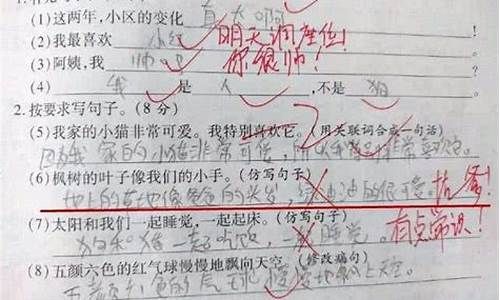 (1)这两年,小区的变化 真大啊
(2)我最喜欢 小红 明天调座位!
(3)阿姨,我 帅 你很帅!
(4) 我 是 人 ,不是 狗
2.按要求写句子。(8分)
(5)我家的小猫非常可爱。我特别喜欢它。(用关联词合成一句话)
因为我家的小猫非常可爱,所以我非常喜欢它。
(6)枫树的叶子像我们的小手。(仿写句子)
地上的草地像爸爸的头发,绿油油的很可爱。找爹!
(7)太阳和我们一起睡觉,一起起床。(仿写句子)
狗和猪一起吃饭,一起睡觉。 有点常识!
(8)五颜六色的红气球慢慢地飘向天空。(修改病句)
五颜六色的气球慢慢地飘上天空。